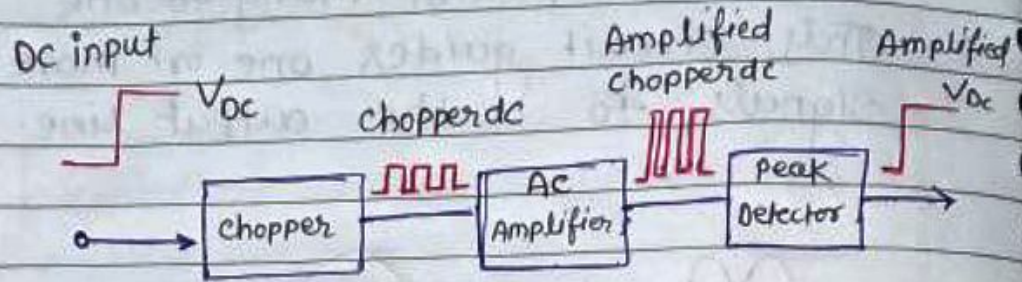 DC input
VDC
chopperdc
Amplified
chopperdc
Amplified
VDC
chopper
AC
Amplifier
Peak
Detector